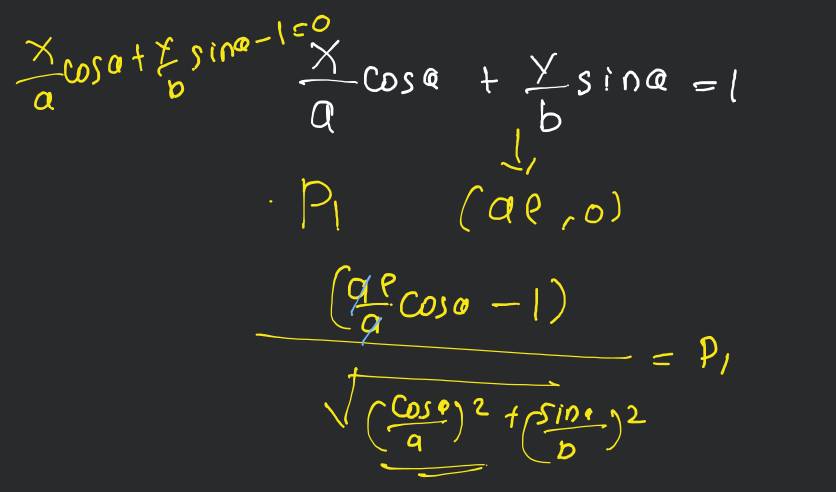 x/a cosθ + y/b sinθ - 1 = 0
x/a cosθ + y/b sinθ = 1
↓
P₁ (ae, 0)
(ae/a cosθ - 1) / √((cosθ/a)² + (sinθ/b)²) = P₁